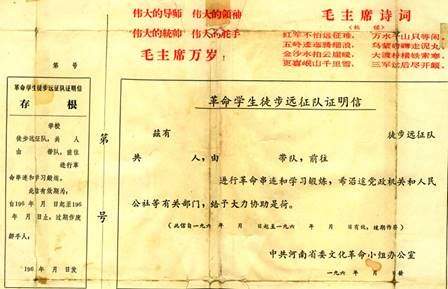 伟大的导师 伟大的领袖
伟大的统帅 伟大的舵手
毛主席万岁
毛主席诗词
红军不怕远征难，万水千山只等闲。
五岭逶迤腾细浪，乌蒙磅礴走泥丸。
金沙水拍云崖暖，大渡桥横铁索寒。
更喜岷山千里雪，三军过后尽开颜。
第 号
革命学生徒步远征队证明信
存 根
学校
徒步远征队，共 人
由 带队，前往
进行革
命串连和学习锻炼。
此信有效期为：
自196 年 月 日起至196
年 月 日止，过期作废
经手人：
196 年 月 日发
第
号
革命学生徒步远征队证明信
茲有 徒步远征队
共 人，由 带队，前往
进行革命串连和学习锻炼，希沿途党政机关和人民
公社等有关部门，给予大力协助是荷。
（此信自一九六 年 月 日起至一九六 年 月 日有效，过期作废）
中共河南省委文化革命小组办公室
一九六 年 月 日